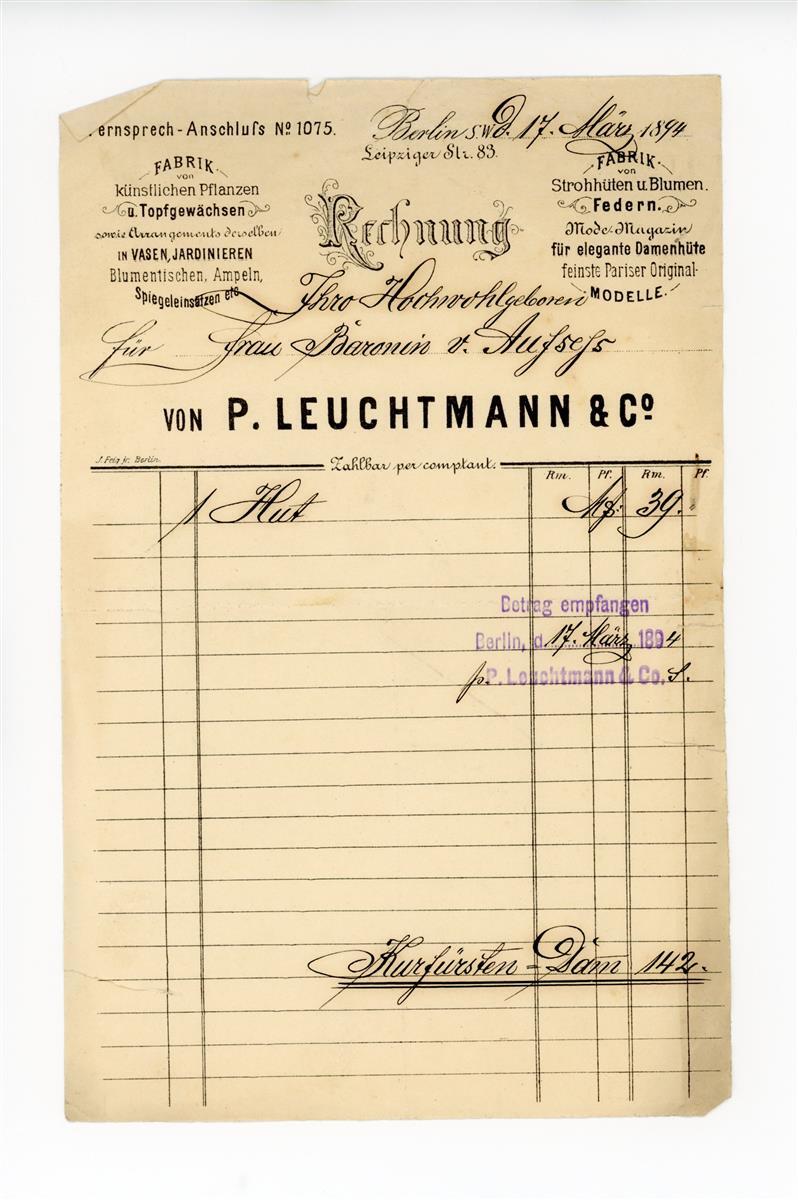 ernsprech-Anschluſs No 1075.
Berlin S.W. d. 17. März 1894
Leipziger Str. 83.
FABRIK
von
künstlichen Pflanzen
u. Topfgewächsen
sowie Arrangements derselben
IN VASEN, JARDINIEREN
Blumentischen, Ampeln,
Spiegeleinsätzen etc
FABRIK
von
Strohhüten u. Blumen.
Federn.
Mode-Magazin
für elegante Damenhüte
feinste Pariser Original-
MODELLE.
Rechnung
Ihro Hochwohlgeboren
für Frau Baronin v. Aufseſs
VON P. LEUCHTMANN & Co
J. Feig jr. Berlin.
Zahlbar per comptant.
Rm. Pf. Rm. Pf.
1 Hut Mk: 39. "
Betrag empfangen
Berlin, d. 17. März 1894
p. P. Leuchtmann & Co. S.
Kurfürsten=Dam 142.